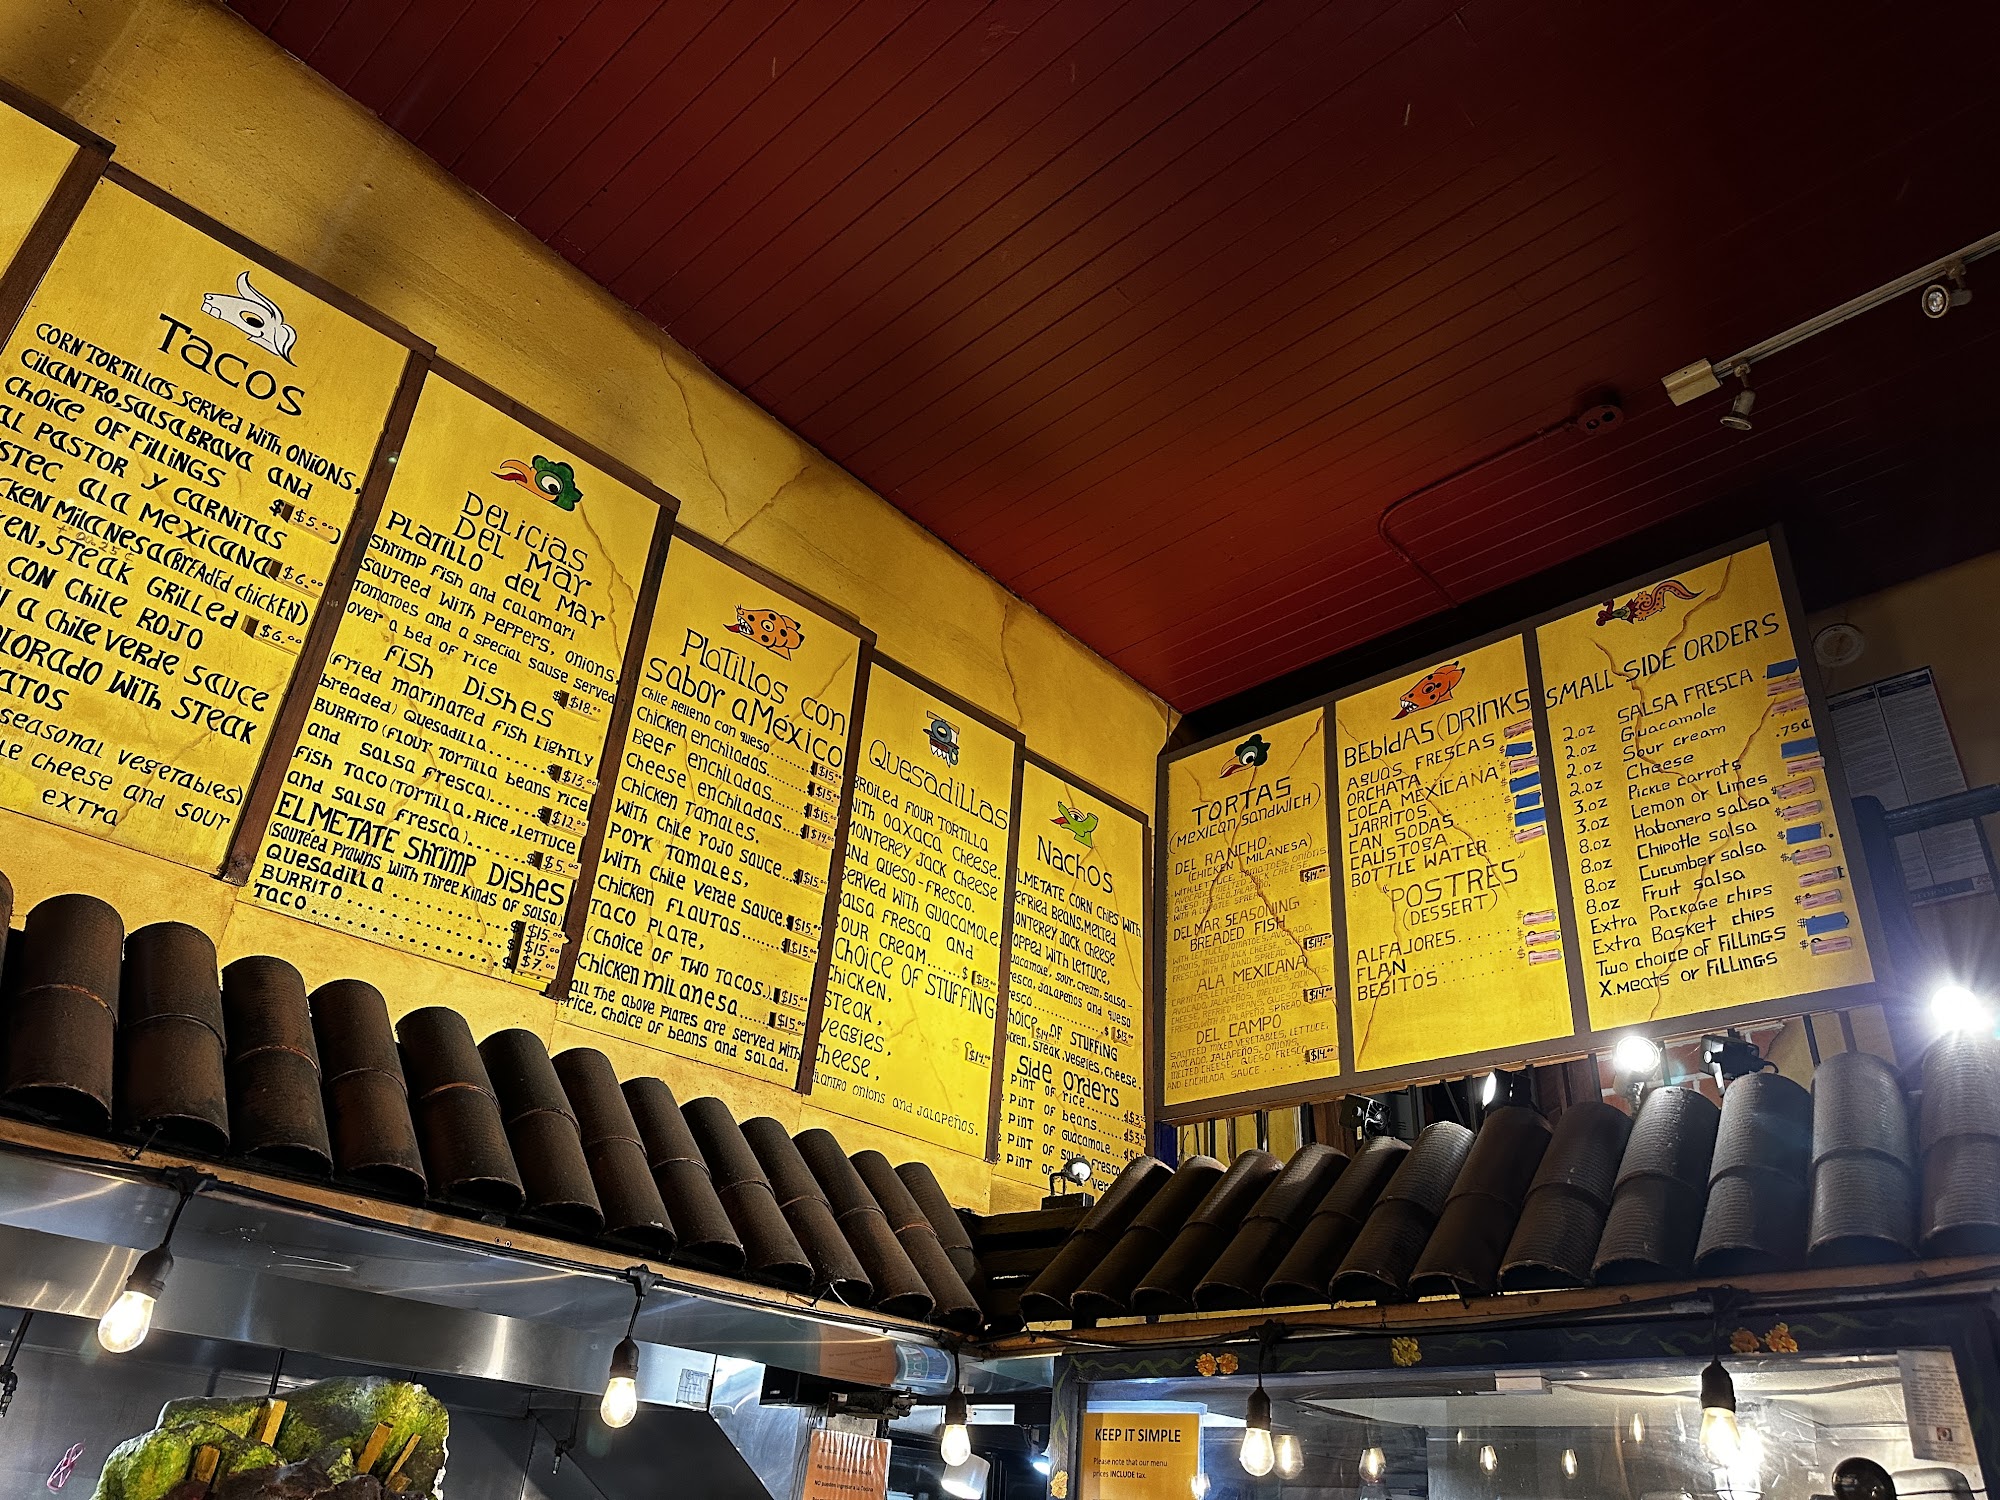 Tacos
CORN TORTILLAS SERVED WITH ONIONS,
CILANTRO, SALSA BRAVA AND
CHOICE OF FILLINGS
AL PASTOR y CARNITAS $5.00
ALA MEXICANA $6.00
MILANESA (BREADED CHICKEN)
STEAK GRILLED $6.00
CON CHILE ROJO
A CHILE VERDE SAUCE
WITH STEAK
seasonal vegetables)
cheese and sour
extra
DELICIAS
DEL MAR
PLATILLO del MAR
Shrimp fish and calamari
sauteed with peppers, onions,
tomatoes and a special sause served
over a bed of rice $18.00
FISH DISHES
(fried marinated fish lightly
breaded) Quesadilla...... $13.00
BURRITO (FLOUR TORTILLA beans rice
and salsa fresca)...... $12.00
Fish Taco (TORTILLA, RICE, LETTUCE
and salsa fresca)...... $5.00
ELMETATE Shrimp Dishes!
(sauteed prawns with three kinds of salsa)
Quesadilla ........ $15.00
BURRITO ........ $15.00
TACO ........ $7.00
Platillos con
sabor a México
Chile Relleno con queso
Chicken enchiladas........ $15.00
Beef enchiladas..... $15.00
Cheese enchiladas.... $14.00
Chicken Tamales,
with chile rojo sauce... $15.00
Pork Tamales,
with chile verde sauce. $15.00
Chicken Flautas...... $15.00
Taco Plate,
(Choice of two tacos.). $15.00
Chicken milanesa..... $15.00
all the above plates are served with
rice, choice of beans and salad.
Quesadillas
BROILED FLOUR TORTILLA
with oaxaca cheese.
Monterey Jack cheese
and queso-fresco.
served with guacamole
salsa fresca and
sour cream...... $13.00
CHOICE OF STUFFING
Chicken,
Steak,
Veggies, $14.00
Cheese,
cilantro onions and jalapeños.
Nachos
ELMETATE CORN CHIPS WITH
refried beans, melted
Monterey Jack cheese
topped with lettuce,
guacamole, sour cream, salsa-
fresca, jalapeños and queso
fresco. $13.00
Choice OF STUFFING $14.00
chicken, steak, vegeies, cheese.
Side orders
PINT OF rice...... $3.
PINT OF beans.... $3.
PINT OF GUACAMOLE...
PINT OF salsa fresca
PINT OF
TORTAS
(MEXICAN SANDWICH)
DEL RANCHO:
(CHICKEN MILANESA)
WITH LETTUCE, TOMATOES, ONIONS,
AVOCADO, MELTED JACK CHEESE,
QUESO FRESCO, JALAPEÑO,
WITH A CHIPOTLE SPREAD $14.00
DEL MAR SEASONING
BREADED FISH
WITH LETTUCE, TOMATOES, AVOCADO, $14.00
ALA MEXICANA
CARNITAS, LETTUCE, TOMATOES, ONIONS,
AVOCADO, JALAPEÑOS, MELTED JACK
CHEESE, REFRIED BEANS, QUESO
FRESCO, WITH A JALAPEÑO SPREAD $14.00
DEL CAMPO
SAUTEED MIXED VEGETABLES, LETTUCE,
AVOCADO, JALAPEÑOS, ONIONS,
MELTED CHEESE, QUESO FRESCO
AND ENCHILADA SAUCE ........ $14.00
BEBIDAS (DRINKS
AGUAS FRESCAS
ORCHATA
COCA MEXICANA
JARRITOS
CAN SODAS
CALISTOGA
BOTTLE WATER
"POSTRES"
(DESSERT)
ALFAJORES
FLAN
BESITOS
SMALL SIDE ORDERS
2.oz SALSA FRESCA
2.oz Guacamole
2.oz Sour cream
2.oz Cheese .75¢
3.oz Pickle carrots
3.oz Lemon or Limes
8.oz Habanero salsa
8.oz Chipotle salsa
8.oz Cucumber salsa
8.oz Fruit salsa
Extra Package chips
Extra Basket chips
Two choice of Fillings
X.MEATS OR FILLINGS
KEEP IT SIMPLE
Please note that our menu
prices INCLUDE tax.